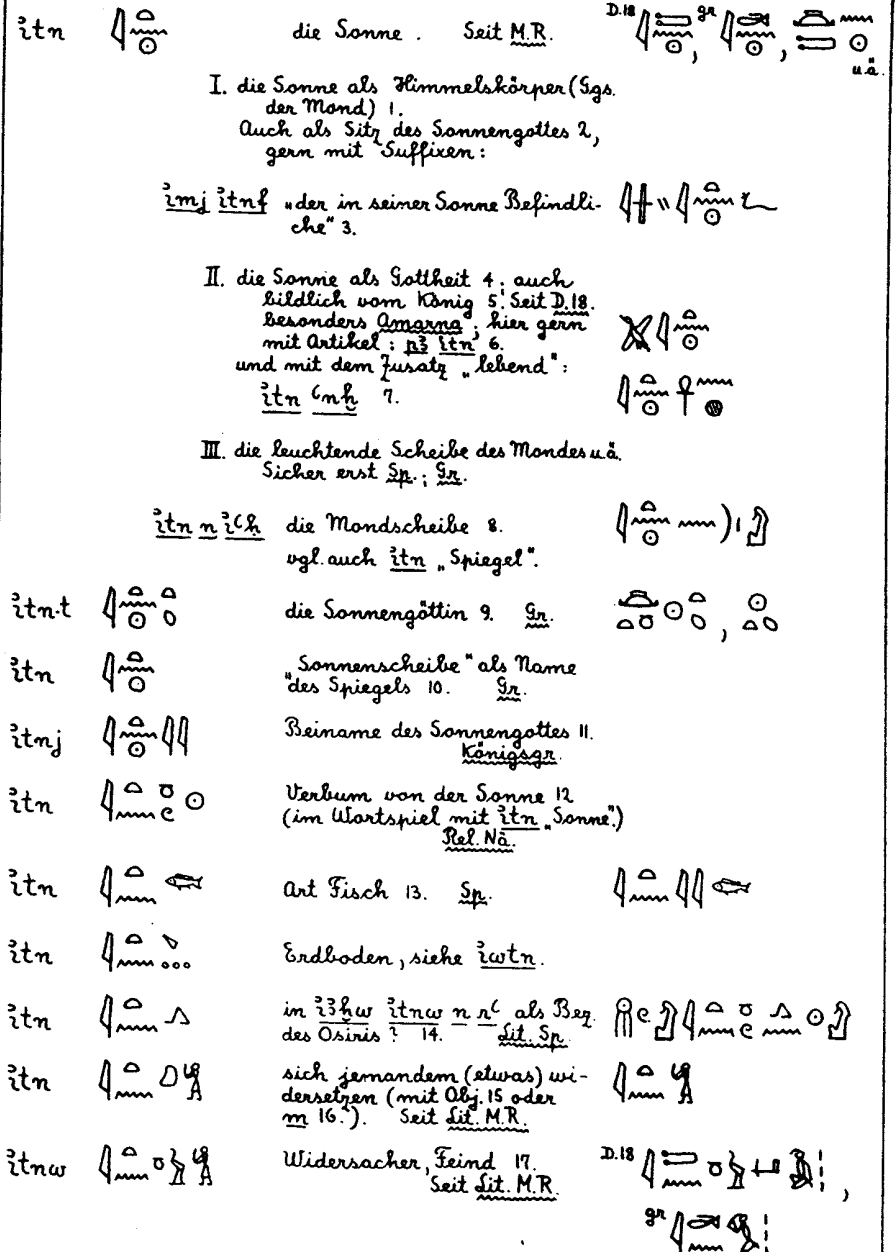 ỉtn die Sonne. Seit M.R. D.18 , gr , u.ä.
I. die Sonne als Himmelskörper (Ggs.
der Mond) 1.
Auch als Sitz des Sonnengottes 2,
gern mit Suffixen:
ỉmj ỉtnf „der in seiner Sonne Befindli-
che" 3.
II. die Sonne als Gottheit 4; auch
bildlich vom König 5. Seit D.18.
besonders Amarna; hier gern
mit Artikel: pꜣ ỉtn 6.
und mit dem Zusatz „lebend":
ỉtn ꜥnḫ 7.
III. die leuchtende Scheibe des Mondes u.ä.
Sicher erst Sp.; Gr.
ỉtn n ỉꜥḥ die Mondscheibe 8.
vgl. auch ỉtn „Spiegel".
ỉtn·t die Sonnengöttin 9. Gr. ,
ỉtn „Sonnenscheibe" als Name
des Spiegels 10. Gr.
ỉtnj Beiname des Sonnengottes 11.
Königsgr.
ỉtn Verbum von der Sonne 12
(im Wortspiel mit ỉtn „Sonne".)
Rel. Nä.
ỉtn Art Fisch 13. Sp.
ỉtn Erdboden, siehe ỉwtn.
ỉtn in ỉꜣḫw ỉtnw n rꜥ als Bez.
des Osiris ? 14. Lit. Sp.
ỉtn sich jemandem (etwas) wi-
dersetzen (mit Obj. 15 oder
m 16.). Seit Lit. M.R.
ỉtnw Widersacher, Feind 17. D.18 ,
Seit Lit. M.R.
gr